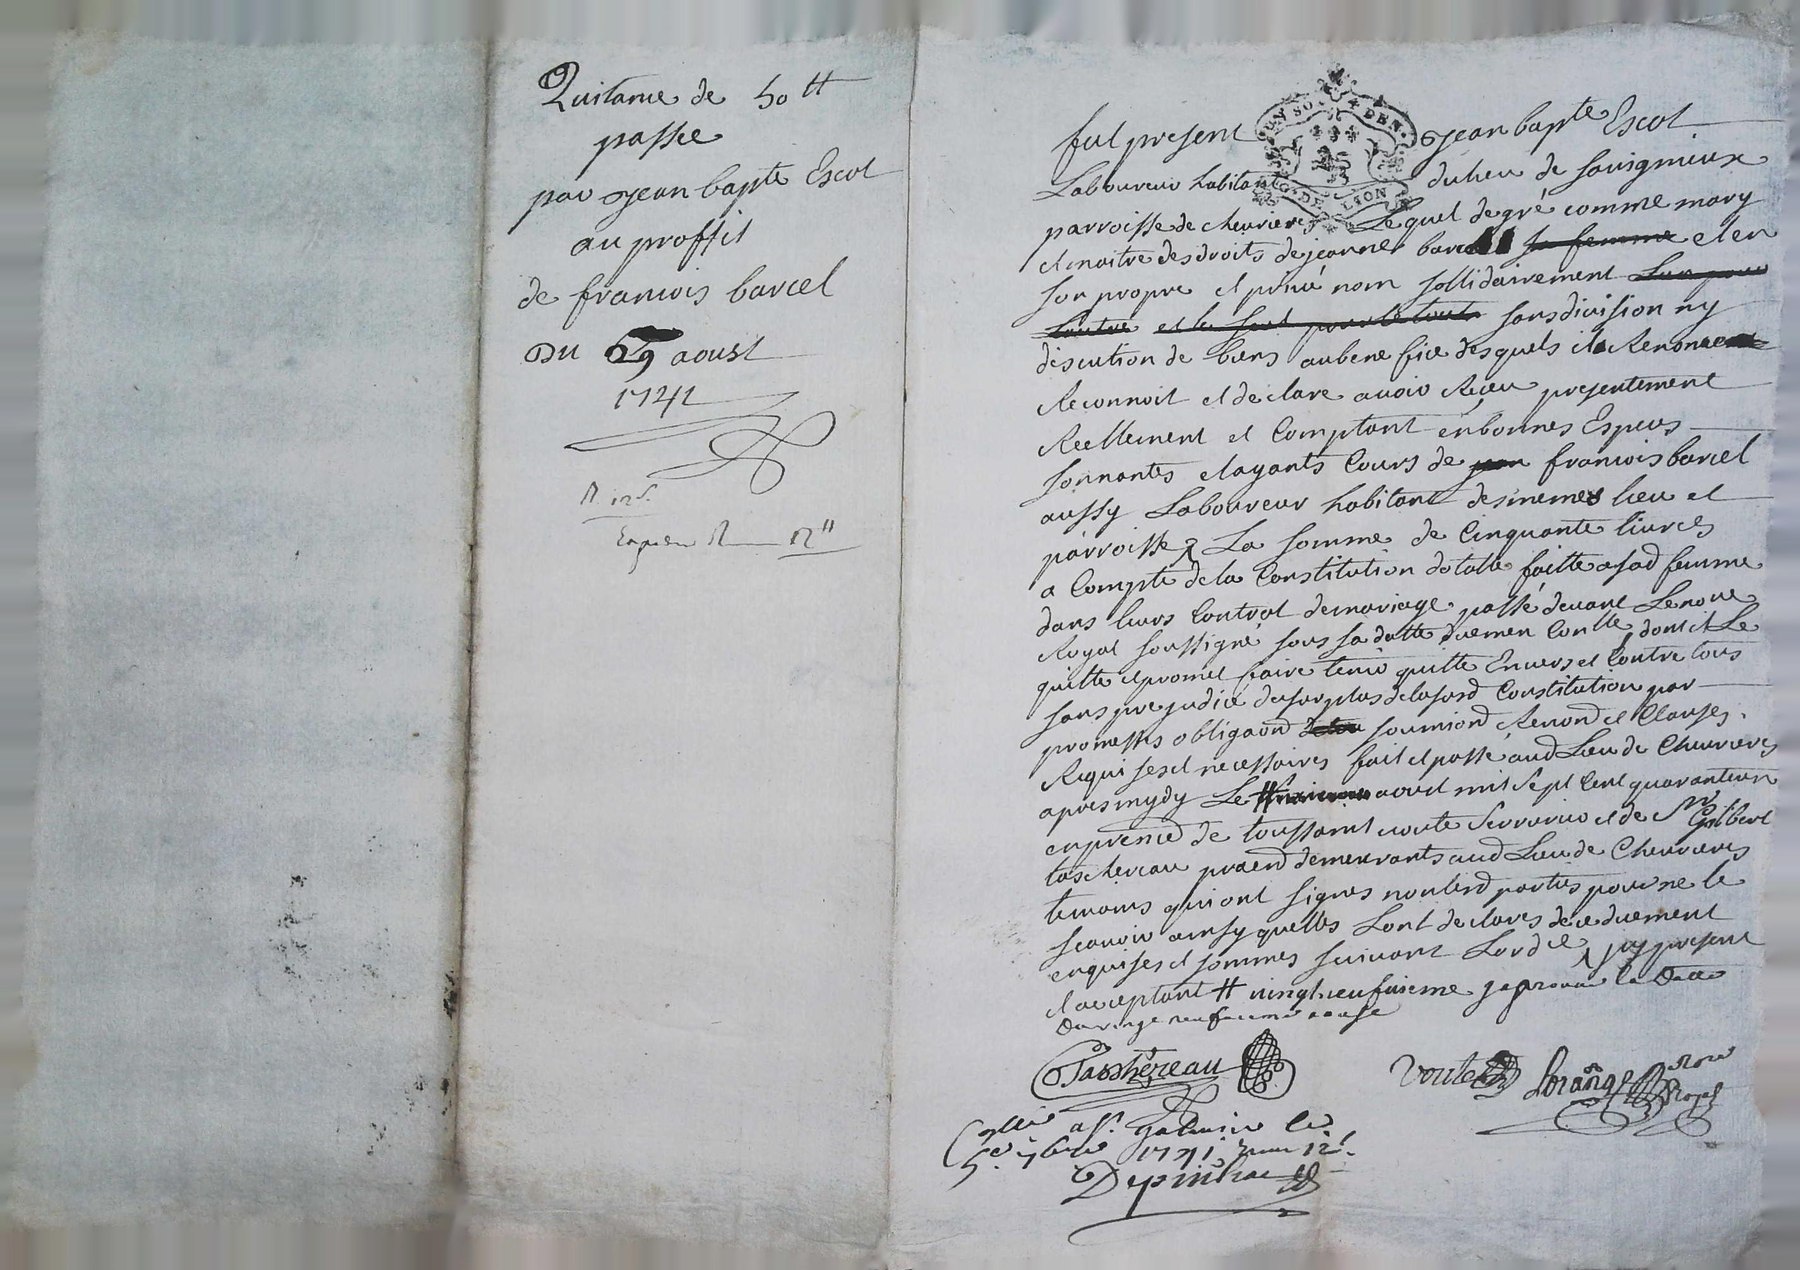 Quitance de 50tt
passée
par Jean bapte Escot
au proffit
de francois barcel
Du 29 aoust
1741
R. 12s.
Expedn R 12tt
fut present Jean bapte Escot
Laboureur habitant du lieu de Savignieux
parroisse de chevrieres Lequel de gré comme mary
et maitre des droits de jeanne barcel sa femme et en
son propre et privé nom sollidairement L'un pour
L'autre et le seul pour le tout sans division ny
discution de biens au benefice desquels il Renonce
Reconnoit et declare avoir Receu presentement
Reellement et Comptant en bonnes Especes
sonnantes et ayants Cours de francois barcel
aussy Laboureur habitant des memes lieu et
parroisse La somme de Cinquante livres
a Compte de la Constitution dotalle faitte a sad femme
dans leurs Contrat de mariage passé devant Le nore
Royal soussigné sous sa datte duemen Conllé dont il Le
quitte et promet faire tenir quitte Envers et Contre tous
sans prejudice du surplus de lasusd Constitution par
promesses obligaond soumiond Renond et Clauses
Requises et necessaires fait et passé aud Lieu de Chevrieres
apres mydy Le # aoust mil sept Cent quarante un
en presence de toussaint voute serrurier et de Sr Gilbert
taschereau praend demeurants aud Lieu de Chevrieres
temoins qui ont signés non lesd parties pour ne le
scavoir ainsy quelles L'ont declarés de ce duement
enquises et sommés suivant L'ordce ^ icy present
et acceptant # vingt neufvieme japrouve la Datte
du vingt neufvieme aoust
Taschereau
Voute
Lorange Nore
Royal
Collé a St. galmier le
5e 7bre 1741 Recu 12s.
Depinhac